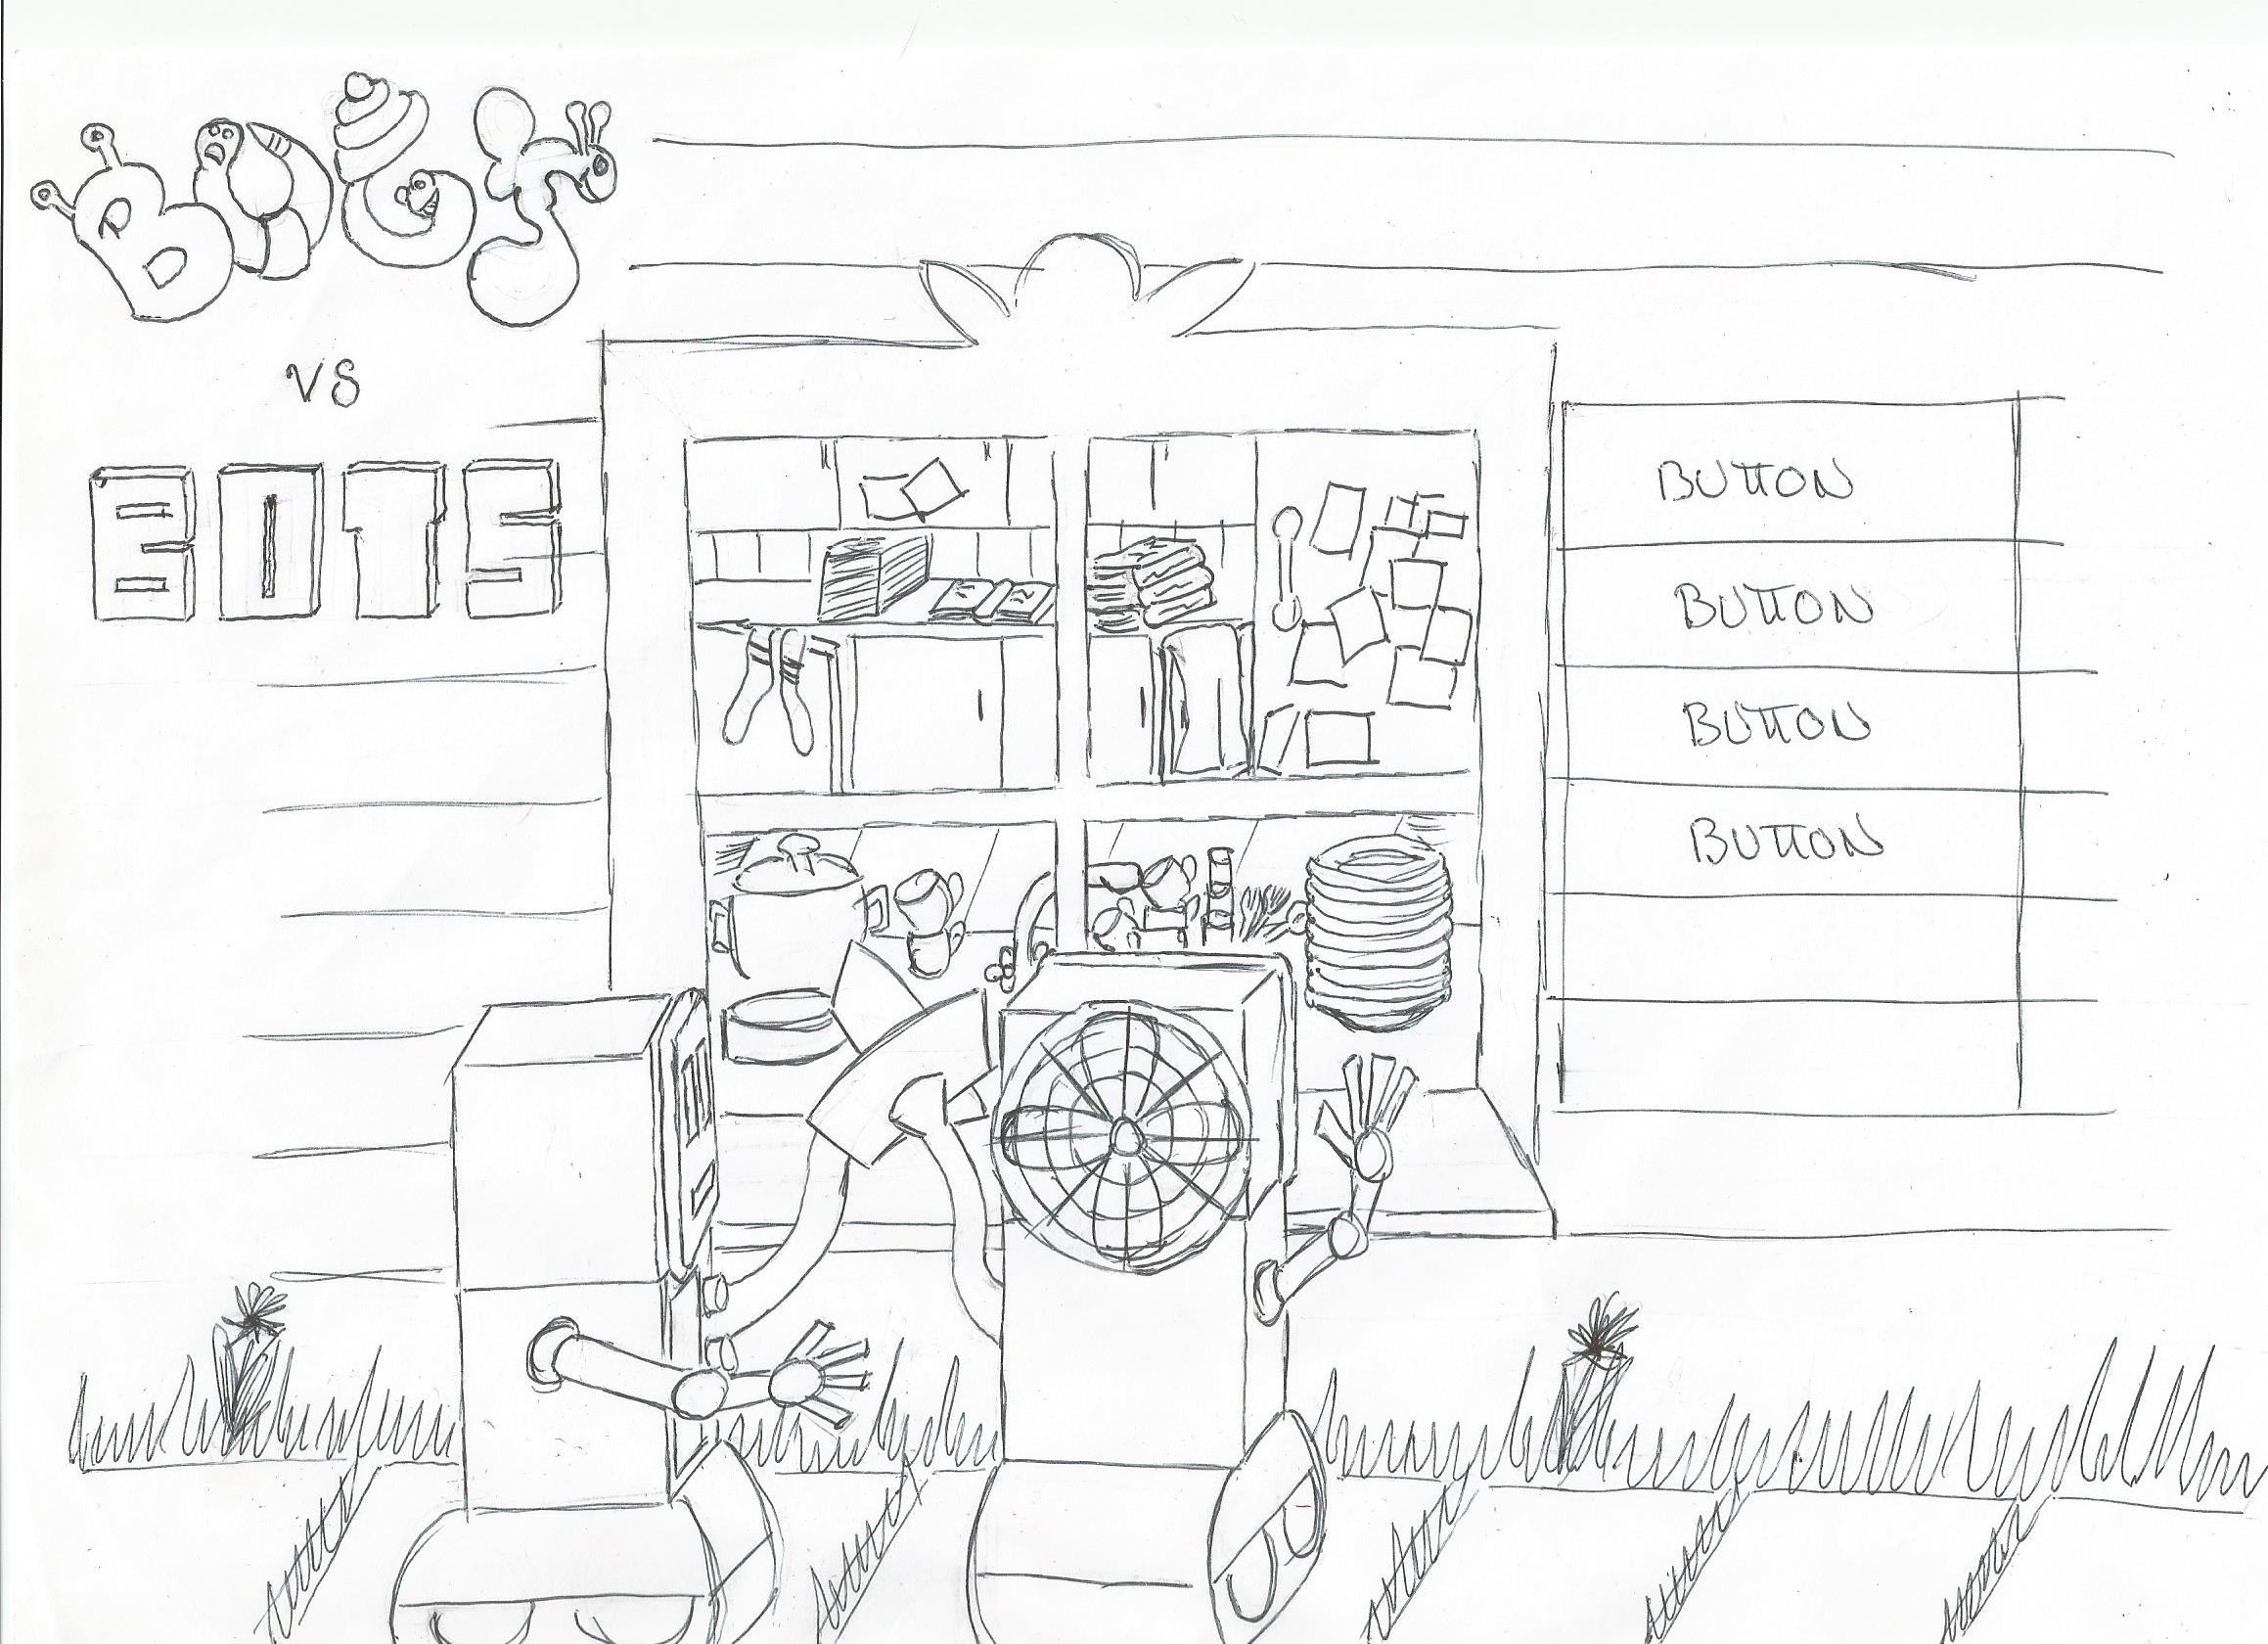 BUGS
VS
BOTS
BUTTON
BUTTON
BUTTON
BUTTON